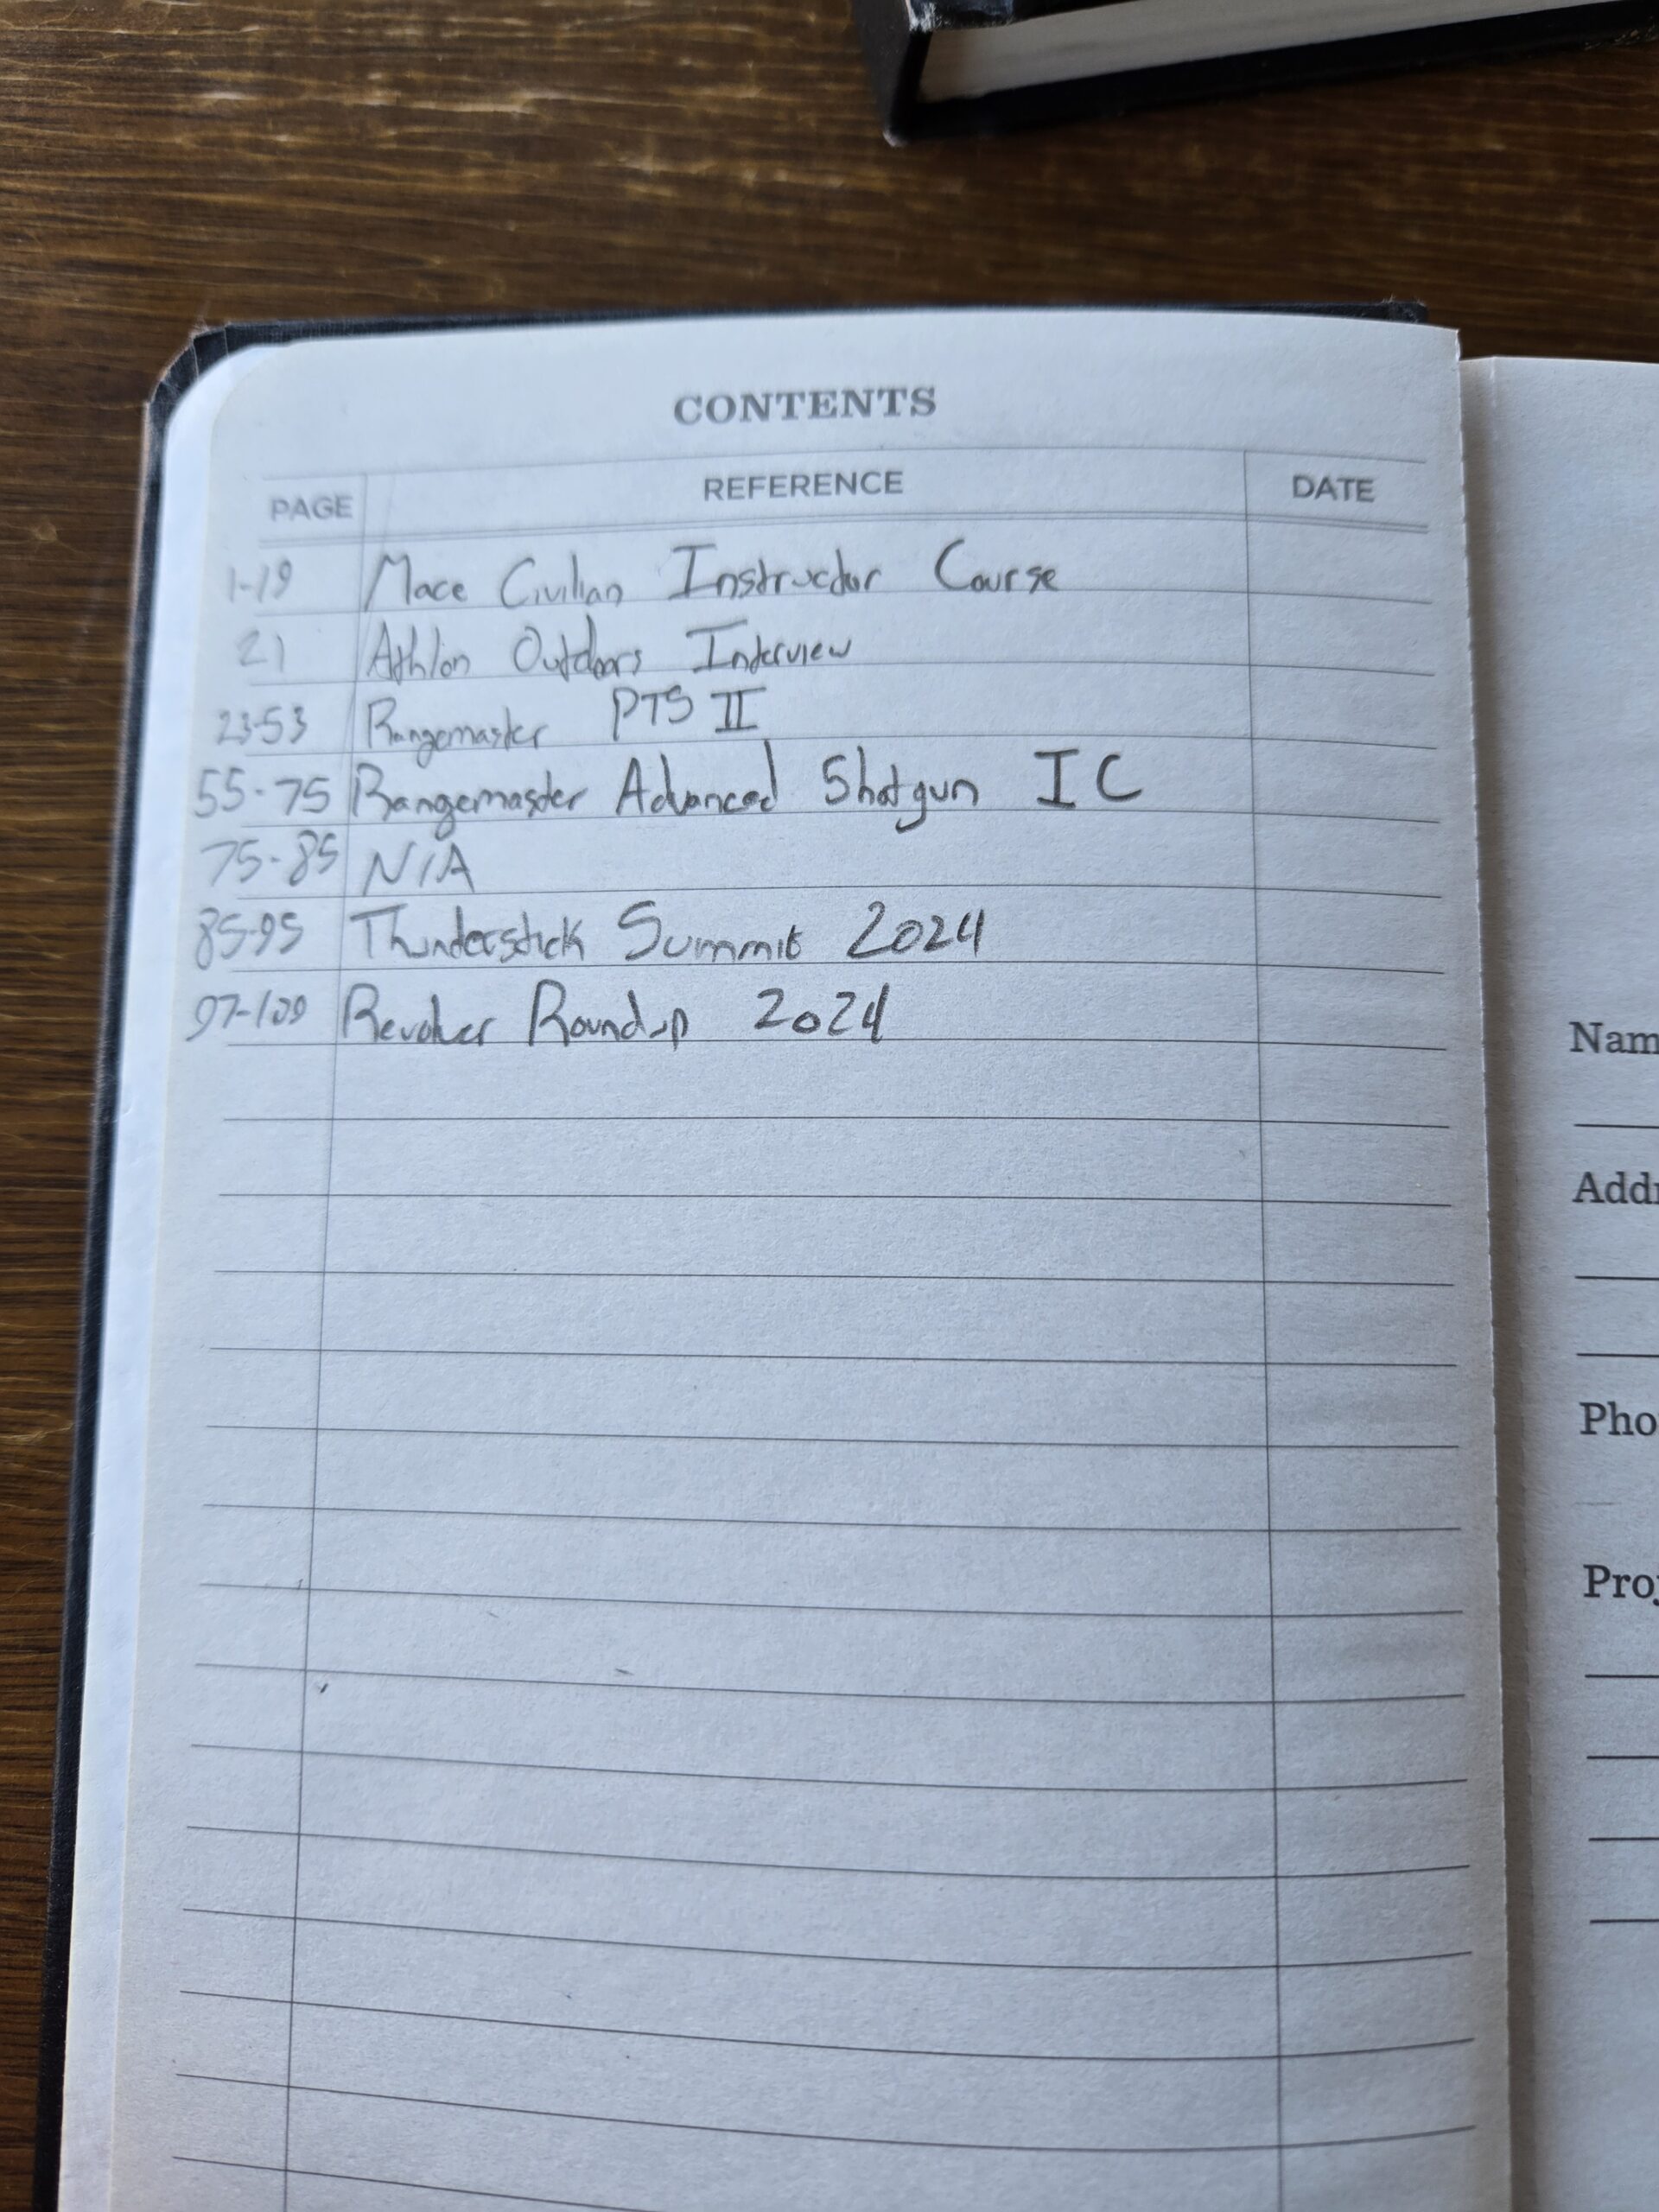 CONTENTS
PAGE REFERENCE DATE
1-19 Mace Civilian Instructor Course
21 Athlon Outdoors Interview
23-53 Rangemaster PTS II
55-75 Rangemaster Advanced Shotgun IC
75-85 N/A
85-95 Thunderstick Summit 2024
97-109 Revolver Roundup 2024
Nam
Addr
Pho
Proj